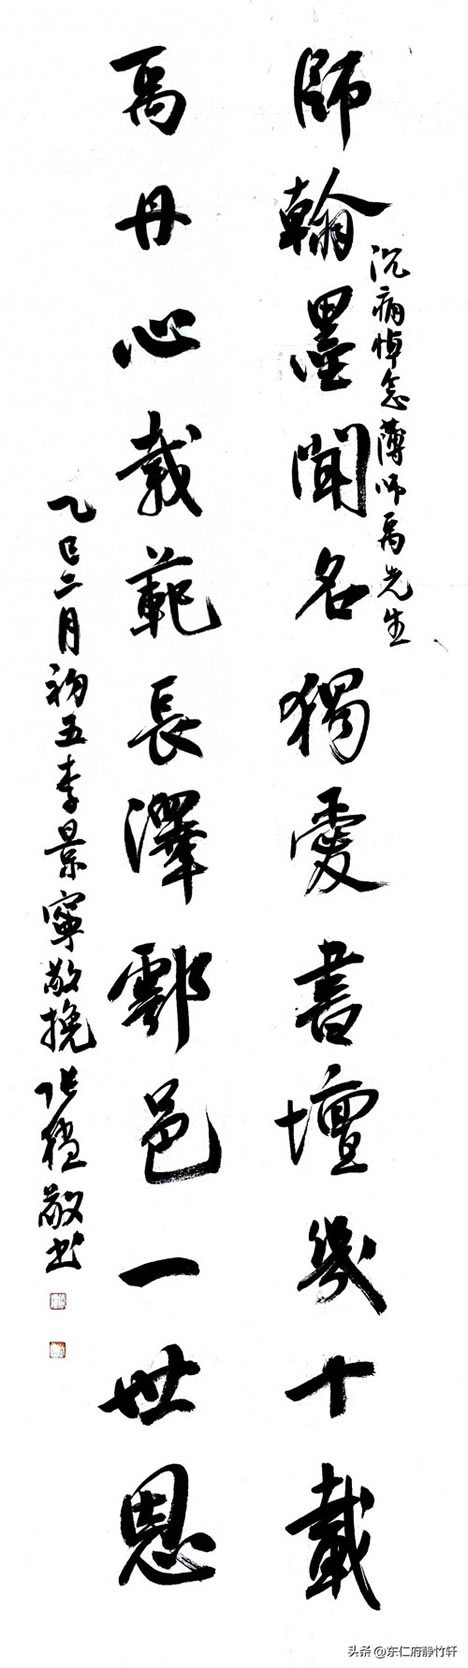 沉痛悼念薄师禹先生
師翰墨聞名獨愛書壇幾十載
禹丹心载範長澤鄠邑一世恩
乙巳二月初五李景寧敬挽 张 敬书
头条 @东仁府静竹轩